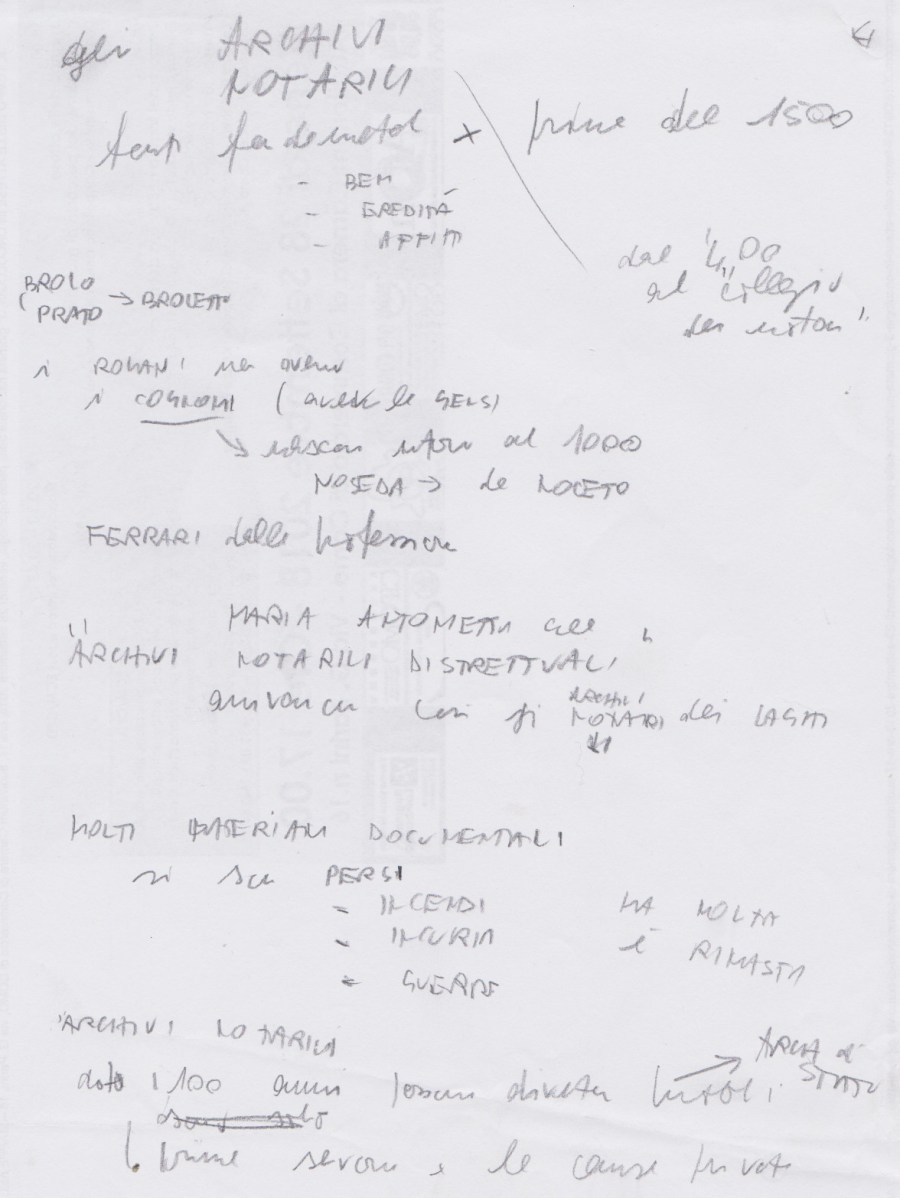 gli ARCHIVI
NOTARILI
fonti fondamentali x prima del 1500
- BENI
- EREDITÀ
- AFFITTI
dal '400
al "collegio
dei notai"
BROLO
(PRATO → BROLETTO
i ROMANI non avevano
i COGNOMI (avevano le GENS)
↘ nascono intorno al 1000
NOSEDA → de NOCETO
FERRARI dalle professioni
MARIA ANTONIETTA
"ARCHIVI NOTARILI DISTRETTUALI"
arrivano così gli ARCHIVI
NOTARI dei LASCITI
MOLTI MATERIALI DOCUMENTALI
si son PERSI
- INCENDI
- INCURIA
- GUERRE
MA MOLTA
è RIMASTA
ARCHIVI NOTARILI
dopo i 100 anni possono diventare pubblici → ARCH di
STATO
prima servono x le cause private